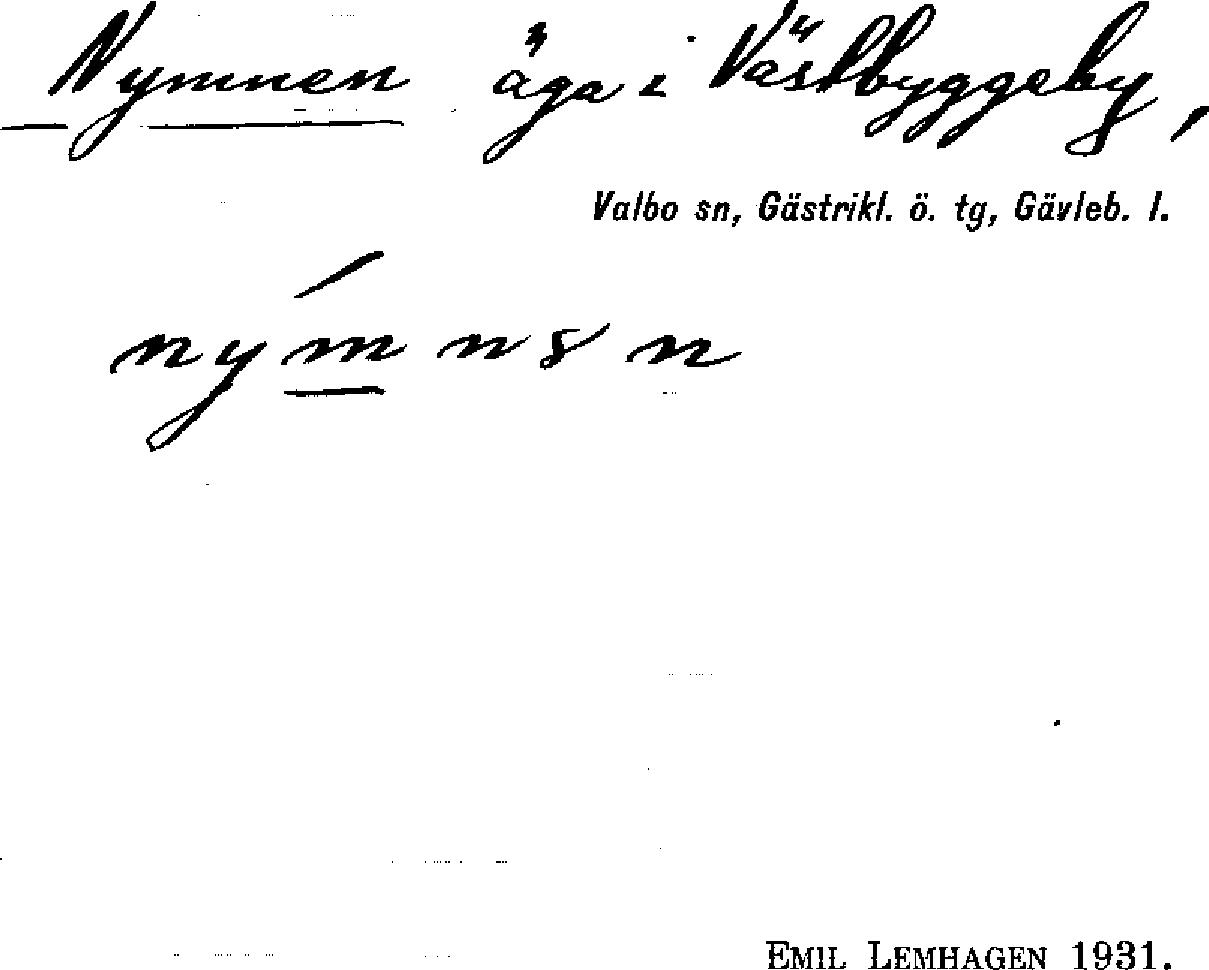 Nymnen äga i Västbyggeby,
Valbo sn, Gästrikl. ö. tg, Gävleb. l.
EMIL LEMHAGEN 1931.